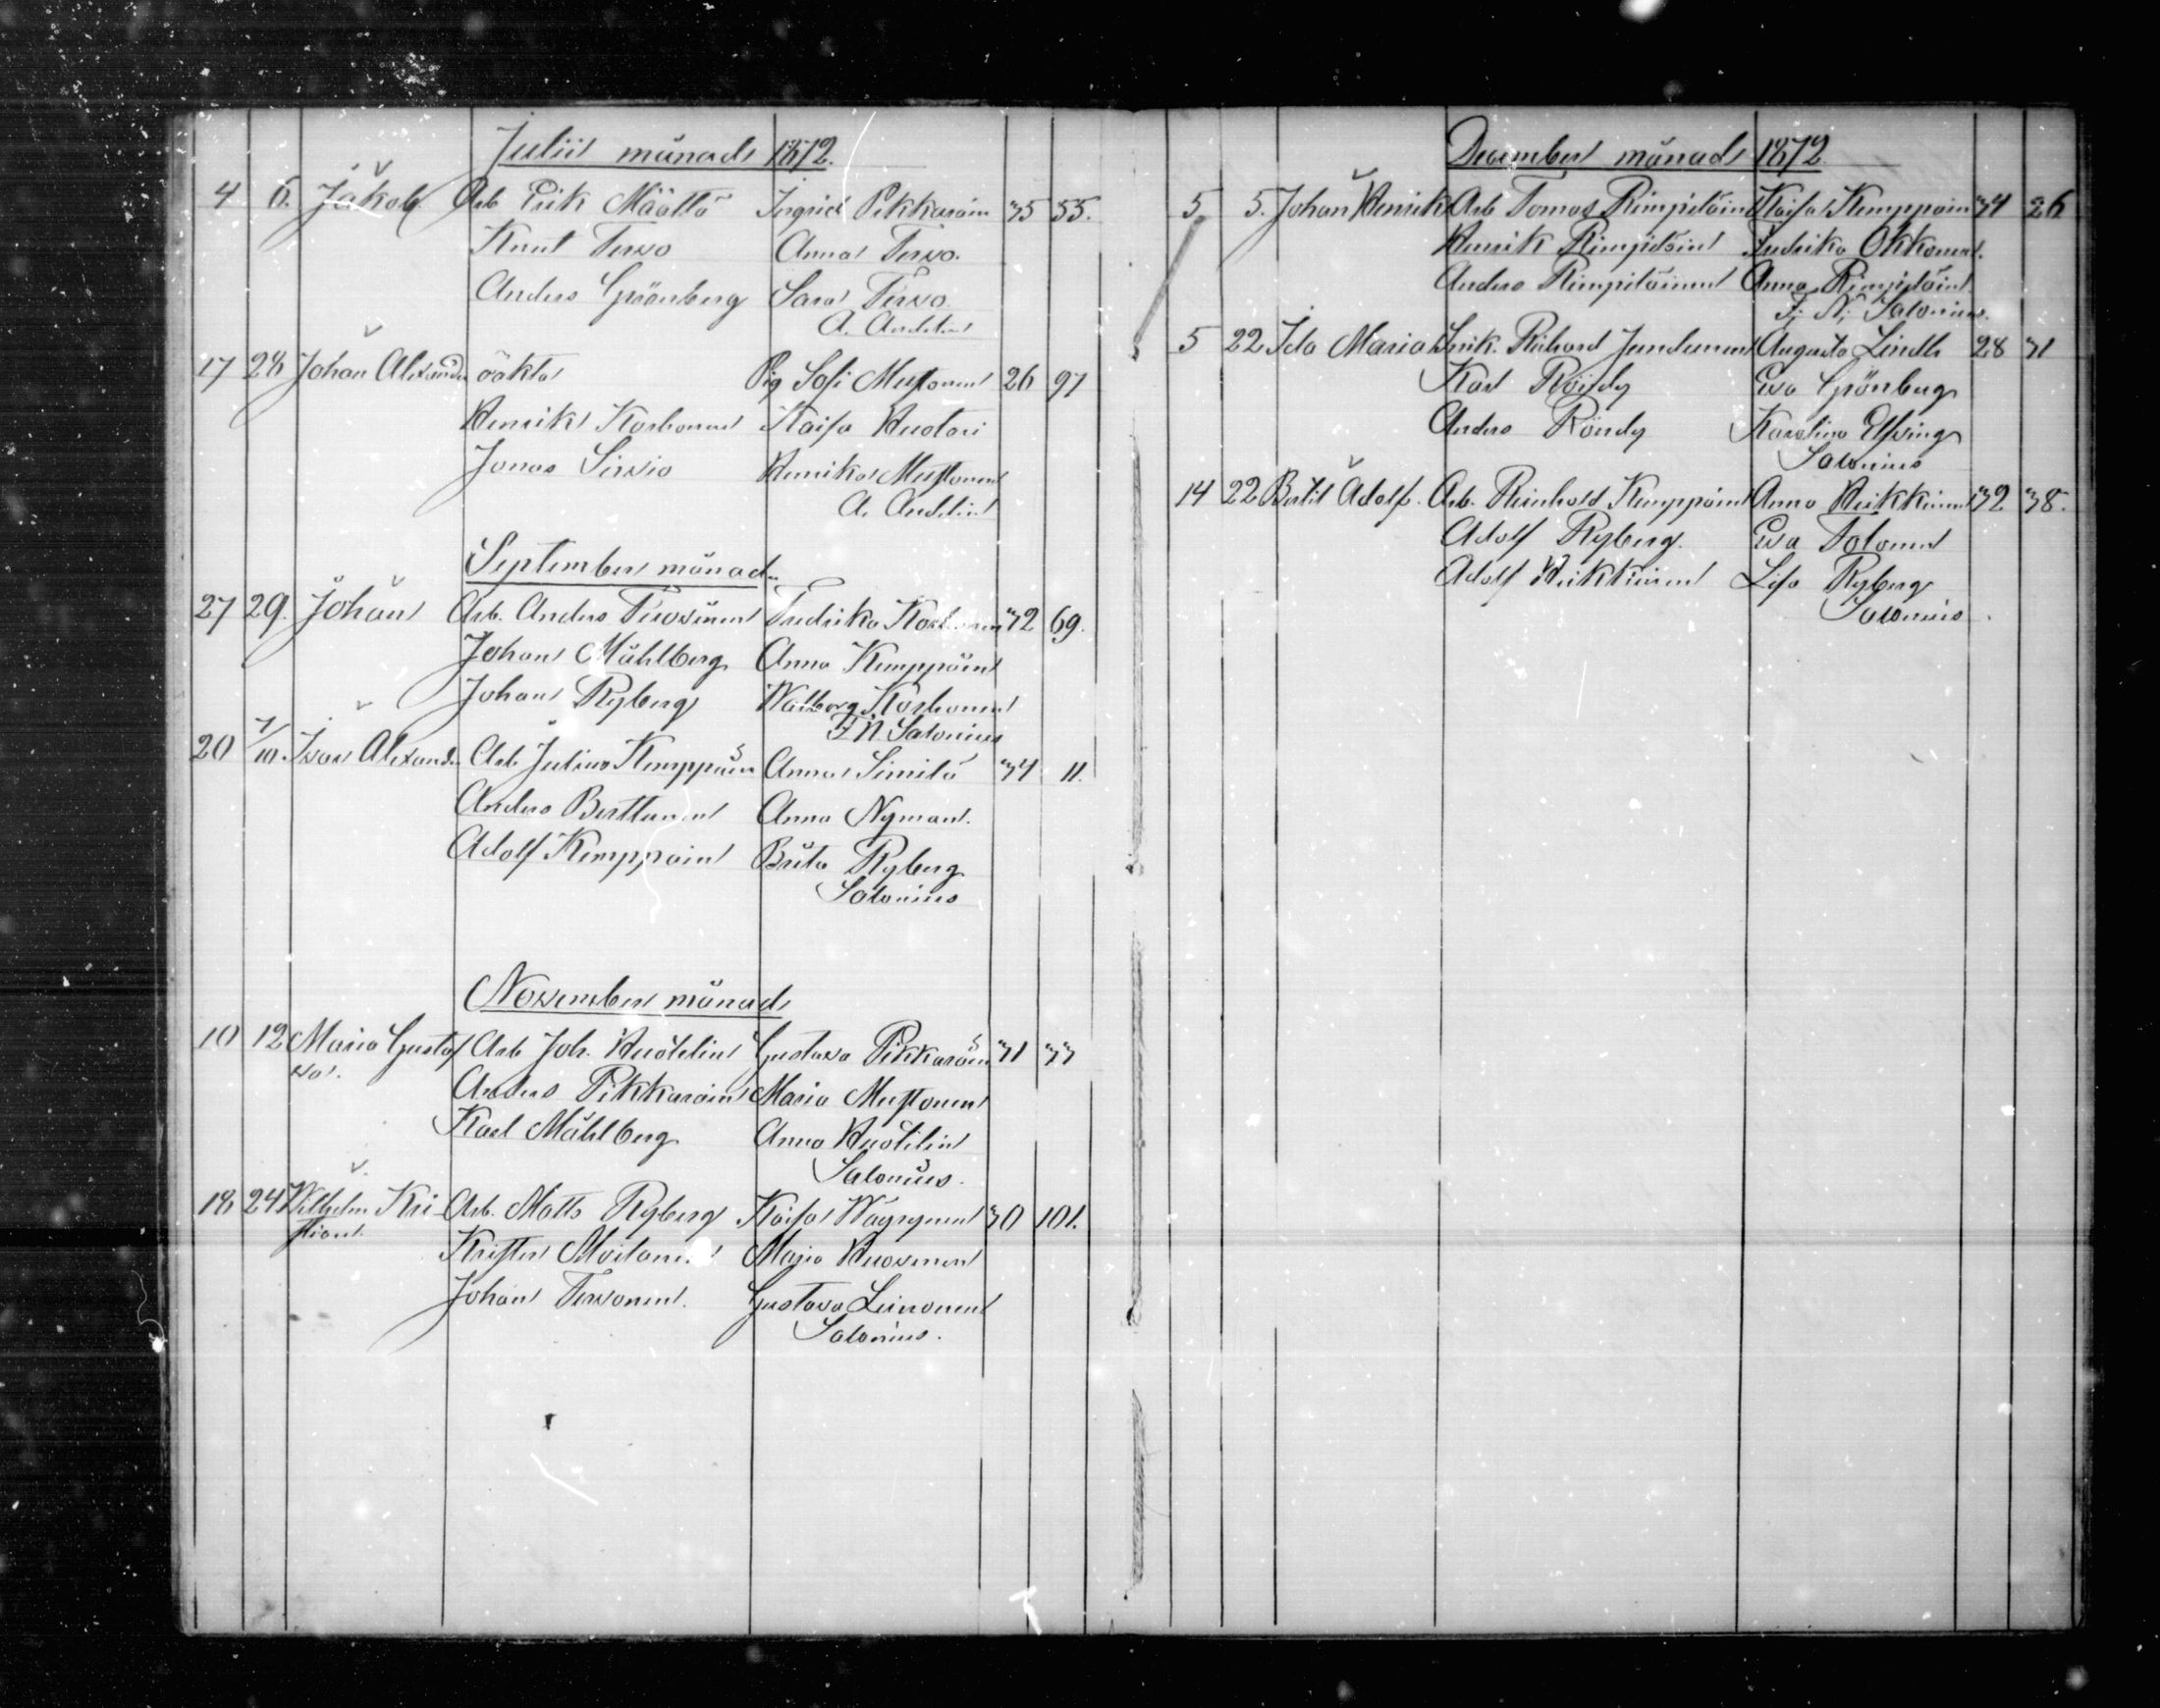 Julii månad 1872.
4 6. Jakob. Arb Erik Määttä Ingrid Pikkarain 35 55.
Knut Tervo Anna Tervo.
Anders Grönberg Sara Tervo.
A. Andelin
17 28 Johan Alexander oäkta Pig Sofi Mustonen 26 97
Henrik Korhonen Kaisa Huotari
Jonas Sirvio Henrika Mustonen
A. Andelin
September månad
27 29. Johan Arb. Anders Fredrika 32 69.
Johan Mählberg Anna Kemppain
Johan Ryberg Walborg Korhonen
F. N. Salonius
20 1/10. Ivar Alexand. Arb Julius Kemppain Anna Similä 34 11.
Anders Anna Nyman.
Adolf Kemppain Brita Ryberg
Salonius
November månad
10 12 Maria Gustaf Arb Joh. Huötilin Gustava Pikkarain 31 33
va. Anders Pikkarain Maria Mustonen
Karl Mählberg Anna Huötilin
Salonius.
18 24 Wilhelm Kri- Arb. Matts Ryberg Kaisa Wäyrynen 30 101.
stian. Krister Moilanen Maja Huovinen
Johan Tervonen. Gustava Leinonen
Salonius.
December månad 1872.
5 5. Johan Henrik Arb Tomas Rimpiläin Kaisa Kemppain 34 26
Henrik Rimpiläin Fredrika Okkonen.
Anders Rimpiläinen Anna Rimpiläin
F. N. Salonius.
5 22 Ida Maria Snik. Rikhard Juntunen Augusta Lindh 28 31
Karl Röndy Eva Grönberg
Anders Röndy Karolina Elfving
Salonius
14 22 Bertil Adolf. Arb. Reinhold Kemppain Anna Heikkinen 32 38.
Adolf Ryberg. Eva Tolonen
Adolf Heikkinen Lisa Ryberg
Salonius.